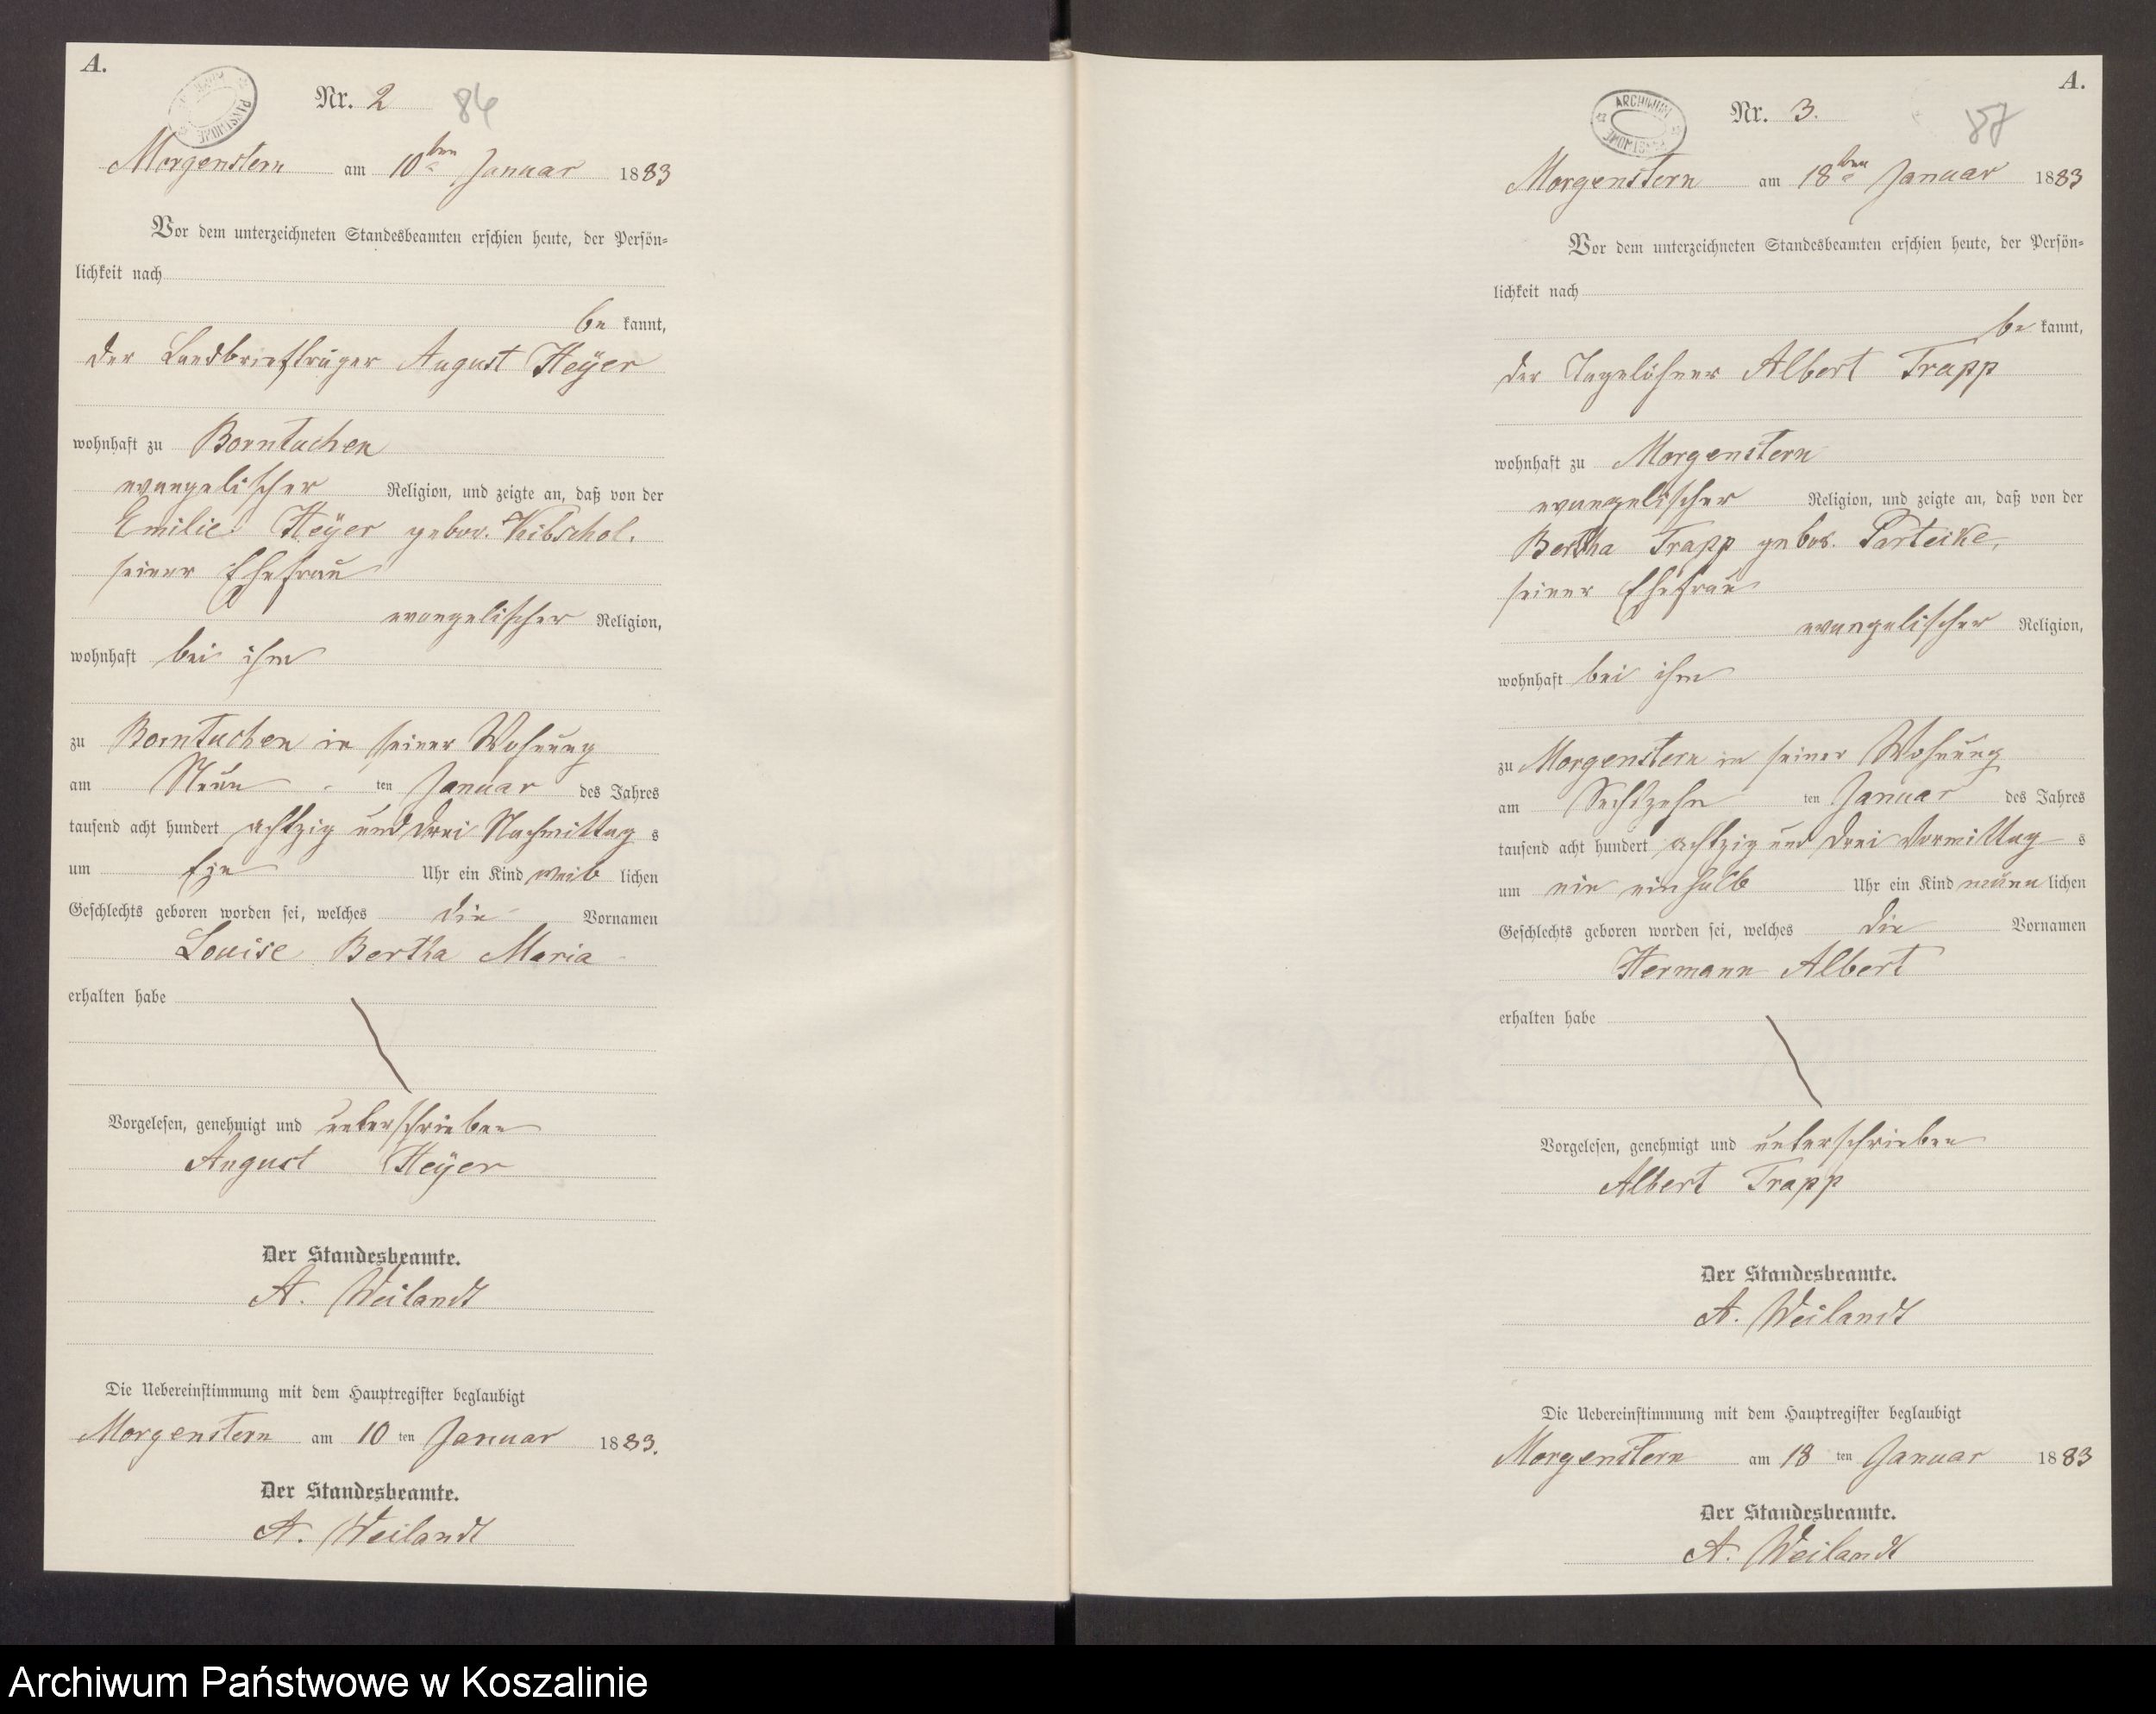 A.
Nr. 2
86
Morgenstern am 10ten Januar 1883
Vor dem unterzeichneten Standesbeamten erschien heute, der Persön=
lichkeit nach
be kannt,
der Landbriefträger August Heÿer
wohnhaft zu Borntuchen
evangelischer Religion, und zeigte an, daß von der
Emilie Heÿer gebor.
seiner Ehefrau
evangelischer Religion,
wohnhaft bei ihm
zu Borntuchen in seiner Wohnung
am Neun ten Januar des Jahres
tausend acht hundert achtzig und drei Nachmittag s
um Uhr ein Kind weib lichen
Geschlechts geboren worden sei, welches die Vornamen
Louise Bertha Maria
erhalten habe
Vorgelesen, genehmigt und unterschrieben
August Heÿer
Der Standesbeamte.
A. Weilandt
Die Uebereinstimmung mit dem Hauptregister beglaubigt
Morgenstern am 10 ten Januar 1883.
Der Standesbeamte.
A. Weilandt
A.
ARCHIWUM
Nr. 3.
87
Morgenstern am 18ten Januar 1883
Vor dem unterzeichneten Standesbeamten erschien heute, der Persön=
lichkeit nach
be kannt,
der Tagelöhner Albert Trapp
wohnhaft zu Morgenstern
evangelischer Religion, und zeigte an, daß von der
Bertha Trapp gebor. Parteike,
seiner Ehefrau
evangelischer Religion,
wohnhaft bei ihm
zu Morgenstern in seiner Wohnung
am Sechszehn ten Januar des Jahres
tausend acht hundert achtzig und drei Vormittag s
um ein einhalb Uhr ein Kind männ lichen
Geschlechts geboren worden sei, welches die Vornamen
Hermann Albert
erhalten habe
Vorgelesen, genehmigt und unterschrieben
Albert Trapp
Der Standesbeamte.
A. Weilandt
Die Uebereinstimmung mit dem Hauptregister beglaubigt
Morgenstern am 18 ten Januar 1883
Der Standesbeamte.
A. Weilandt
Archiwum Państwowe w Koszalinie